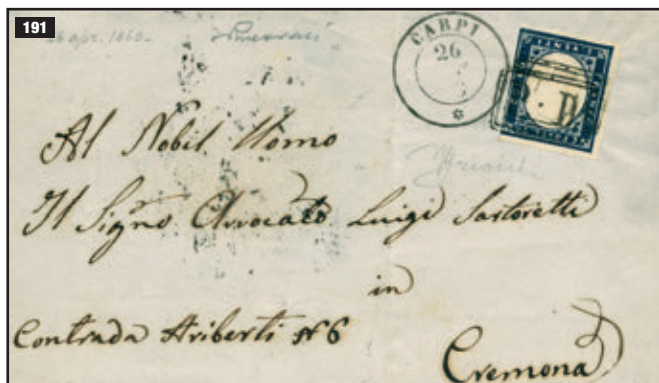 191
26 apr. 1860.
CARPI
26
P. D.
Al Nobil Uomo
Il Signo Avvocato Luigi Sartoretti
in
Contrada Ariberti N 6
Cremona